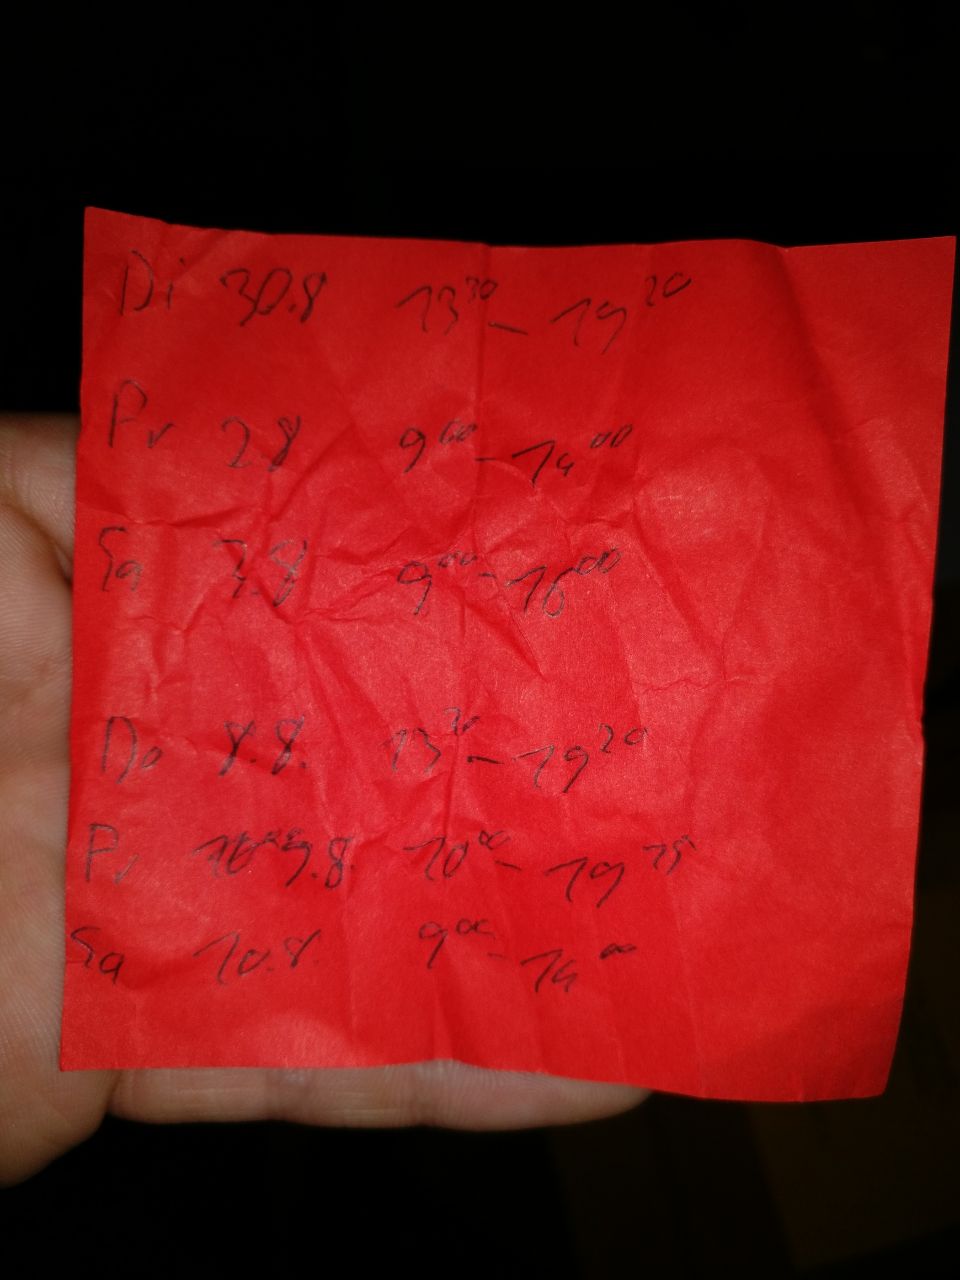 Di 30.8 13³⁰ - 19²⁰
Fr 2.8 9⁰⁰ - 14⁰⁰
Sa 3.8 9⁰⁰ - 16⁰⁰
Do 8.8. 13³⁰ - 19²⁰
Fr 9.8. 10⁰⁰ - 19¹⁵
Sa 10.8. 9⁰⁰ - 14⁰⁰